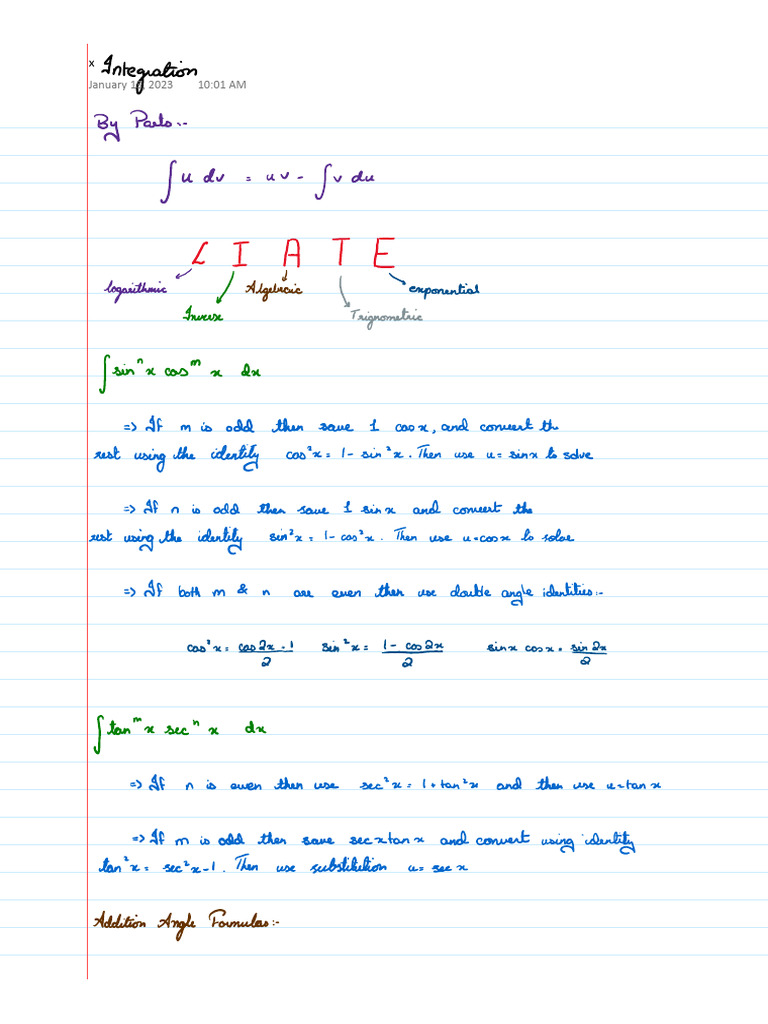 x Integration
January 1, 2023 10:01 AM
By Parts:-
∫ u dv = uv - ∫ v du
L I A T E
logarithmic Algebraic exponential
Inverse Trignometric
∫ sin^n x cos^m x dx
=> If m is odd then save 1 cosx, and convert the
rest using the identity cos²x = 1 - sin²x. Then use u = sinx to solve
=> If n is odd then save 1 sinx and convert the
rest using the identity sin²x = 1 - cos²x. Then use u = cosx to solve
=> If both m & n are even then use double angle identities:-
cos²x = (cos2x + 1)/2 sin²x = (1 - cos2x)/2 sinx cosx = sin2x/2
∫ tan^m x sec^n x dx
=> If n is even then use sec²x = 1 + tan²x and then use u = tanx
=> If m is odd then save secxtanx and convert using identity
tan²x = sec²x - 1. Then use substitution u = secx
Addition Angle Formulas:-